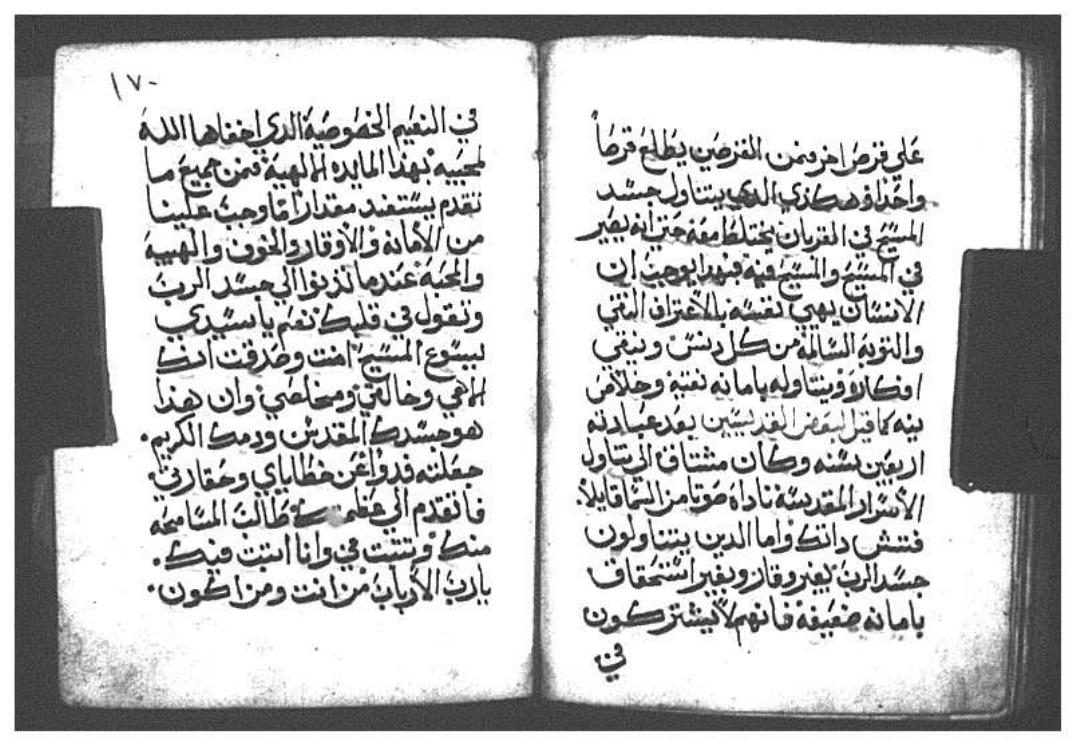 علي قرص اخر فمن القرصين يطلع قرصاً
واحداً وهكذي الدي يتناول جسد
المسيح في القربان يختلط معه حتي انه يصير
في المسيح والمسيح فيه فبهدا يوجب ان
الانسان يهي نفسه بالاعتراف النقي
والتوبه السالمة من كل دنس وينقي
افكاره ويتناوله بامانه نقية وخلاص
نيه كما قيل لبعض القديسين بعد عبادته
اربعين سنه وكان مشتاق الي تناول
الأسرار المقدسة ناداه صوتا من السما قايلاً.
فتش داتك واما الدين يتناولون
جسد الرب بغير وقار وبغير استحقاق
بامانه ضعيفه فانهم لا يشتركون
في
١٧٠
في النعيم الخصوصية الدي اخفاها الله
لمحبيه بهذا المايده الالهية فمن جميع ما
تقدم يستفيد مقدار ما وجب علينا
من الأمانه والأوقار والخوف والهيبه
والمحبة عندما ندنوا الي جسد الرب
وتقول في قلبك نعم ياسيدي
يسوع المسيح امنت وصدقت انك
الاهي وخالقي ومخلصي وان هدا
هو جسدك المقدس ودمك الكريم.
جعلته فدوا عن خطاياي وحقارتي
فاتقدم الي طالب المسامحه
منك وتثبت في وانا اثبت فيك.
يارب الأرباب من انت ومن اكون.